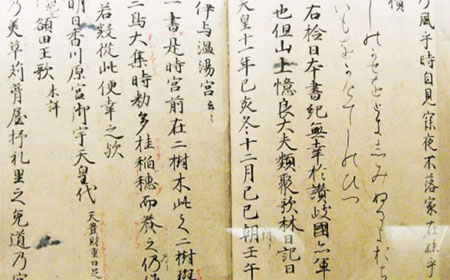 乃風乎時自見寐夜不落家在妹乎
いもをかけてしのひつ
右檢日本書紀無幸於讃岐國亦軍
也但山上憶良大夫類聚歌林日記曰
天皇十一年己亥冬十二月己巳朔壬午
伊与温湯宮云々
一書是時宮前在二樹木此之二樹
二鳥大集時勅多挂稲穂而養之乃作
若疑從此便幸之歟
明日香川原宮御宇天皇代 天豊財重日足
額田王歌 未詳
乃美草苅葺屋杼礼里之兎道乃宮